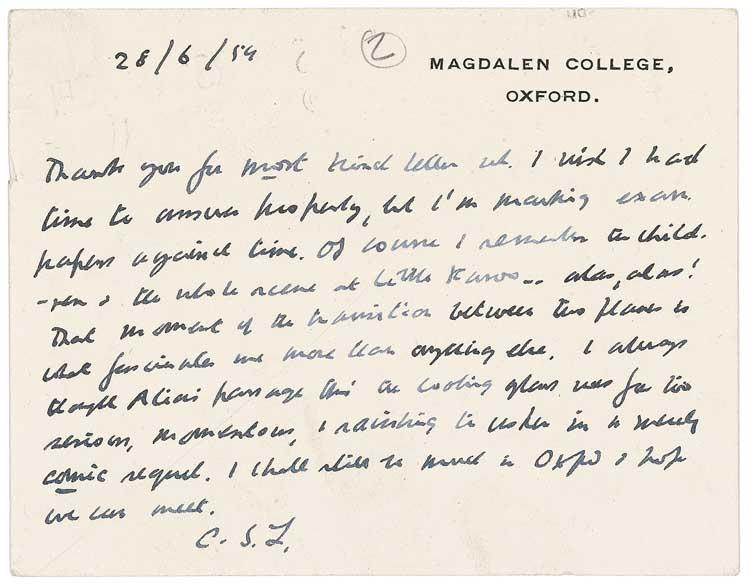 28/6/54
2
MAGDALEN COLLEGE,
OXFORD.
Thank you for most kind letter wh. I wish I had
time to answer properly, but I'm marking exam.
papers against time. Of course I remember the child-
-ren & the whole scene at Little Karoo... alas, alas!
That moment of the transition between two planes is
what fascinates me more than anything else. I always
thought Alice's passage thro' the looking glass was far too
serious, momentous, & ravishing to usher in a merely
comic sequel. I shall still be much in Oxford & hope
we can meet.
C. S. L.